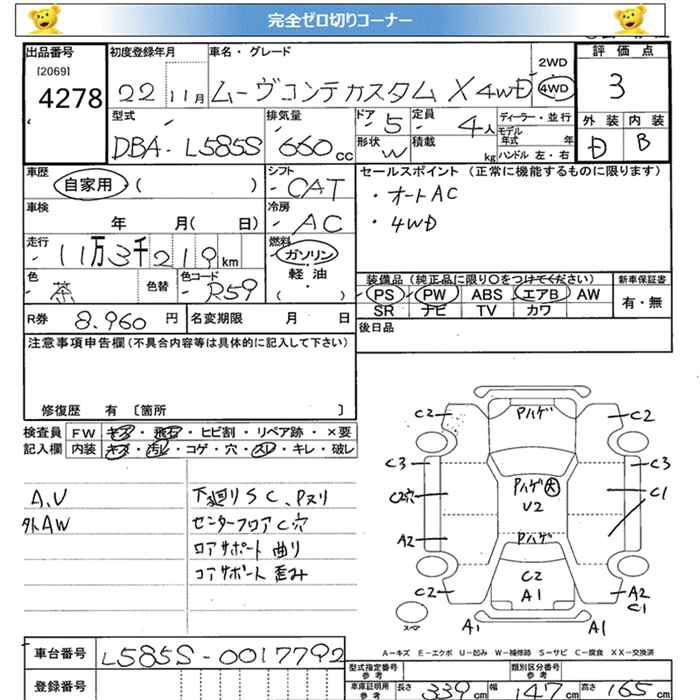 完全ゼロ切りコーナー
出品番号 初度登録年月 車名・グレード 2WD 評価点
[2069]
4278 22 11月 ムーヴコンテカスタム X 4WD 4WD 3
型式 排気量 ドア 5 定員 4人 ディーラー・並行 外装 内装
DBA- L585S 660cc 形状 W 積載 kg モデル年式 年 D B
ハンドル 左・右
車歴 シフト セールスポイント (正常に機能するものに限ります)
自家用 ( ) CAT ・オートAC
車検 冷房 ・4WD
年 月( 日) AC
走行 燃料
11万3千219km ガソリン
色 色替 色コード 軽・油 装備品 (純正品に限り○をつけてください) 新車保証書
茶 R59 ( ) PS PW ABS エアB AW 有・無
SR ナビ TV カワ
R券 8.960 円 名変期限 月 日 後日品
注意事項申告欄 (不具合内容等は具体的に記入して下さい)
修復歴 有 〔箇所 〕
検査員 FW キズ・飛石・ヒビ割・リペア跡・×要
記入欄 内装 キズ・汚レ・コゲ・穴・スレ・キレ・破レ
A、V 下廻りSC、Pヌリ
外AW センターフロアC穴
ロアサポート曲り
コアサポート歪み
C2 Pハゲ C2
C3 C3
C2穴 Pハゲ大 C1
U2
A2 Pハゲ
C2 C2 A2
A1 C1
スペア A1 A1
A-キズ E-エクボ U-凹み W-補修跡 S-サビ C-腐食 XX-交換済
車台番号 L585S-0017792 型式指定番号 参考 類別区分番号 参考
登録番号 車庫証明用 参考 長さ 339cm 幅 147cm 高さ 165cm